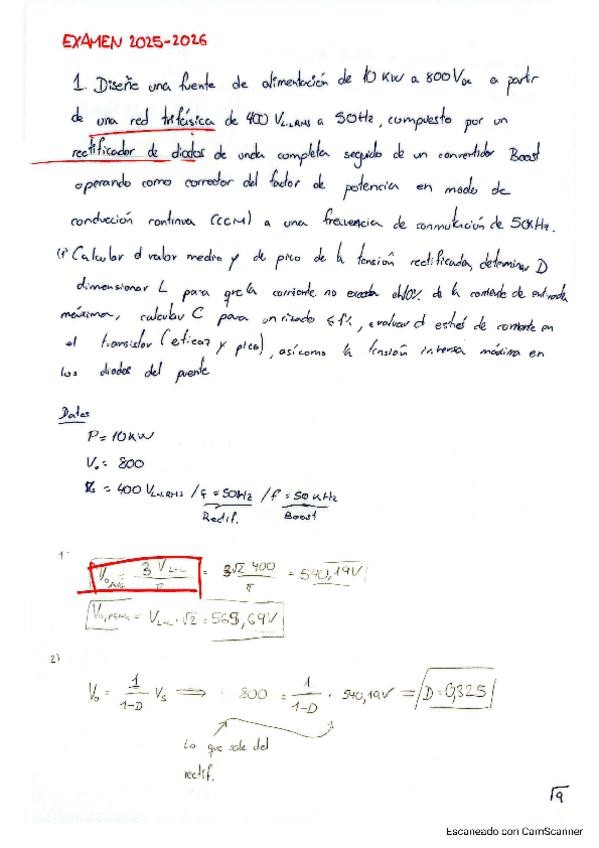 EXAMEN 2025-2026
1. Diseñe una fuente de alimentación de 10 KW a 800 VDC a partir
de una red trifásica de 400 VL-L,RMS a 50Hz, compuesto por un
rectificador de diodos de onda completa seguido de un convertidor Boost
operando como corrector del factor de potencia en modo de
conducción continua (CCM) a una frecuencia de conmutación de 50KHz.
Calcular el valor medio y de pico de la tensión rectificada, determinar D
dimensionar L para que la corriente no exceda el 10% de la corriente de entrada
máxima, calcular C para un rizado ≤1%, evaluar el estrés de corriente en
el transistor (eficaz y pico), así como la tensión inversa máxima en
los diodos del puente
Datos
P = 10KW
Vo = 800
= 400 VL-L,RMS / f = 50Hz / f = 50 KHz
Rectif. Boost
1.
Vo,AVG = 3 VL-L / π = 3√2 400 / π = 540,19V
Vo,PEAK = VL-L · √2 = 565,69V
2)
Vo = 1 / 1-D Vs ⟹ 800 = 1 / 1-D · 540,19V ⟹ D = 0,325
Lo que sale del
rectif.
Escaneado con CamScanner